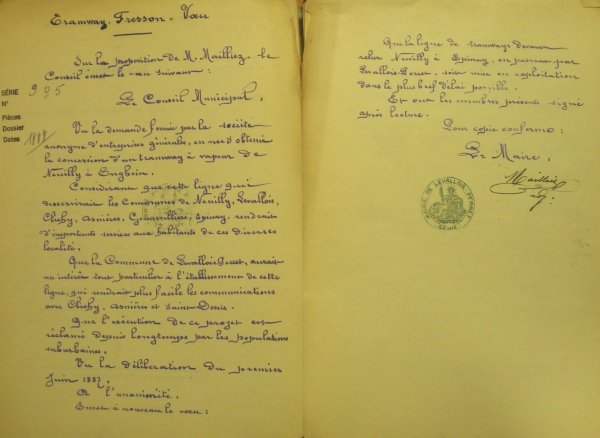 Tramway. Fresson. Vœu
Sur la proposition de M. Mailliez, le
Conseil émet le vœu suivant :
Le Conseil Municipal,
SÉRIE
N°
905
Pièces
Dossier
Dates
Vu la demande formée par la société
anonyme d'entreprises générales, en vue d'obtenir
la concession d'un tramway à vapeur de
Neuilly à Enghein.
Considérant que cette ligne qui
desservirait les Communes de Neuilly, Levallois,
Clichy, Asnières, Gennevilliers, Epinay, rendrait
d'importants services aux habitants de ces diverses
localité,
Que la Commune de Levallois-Perret, aurait
un intérêt tout particulier à l'établissement de cette
ligne, qui rendrait plus facile les communications
avec Clichy, Asnières et Saint-Denis.
Que l'exécution de ce projet est
réclamé depuis longtemps par les populations
suburbaines,
Vu la délibération du premier
Juin 1887,
A l'unanimité,
Emet à nouveau le vœu :
Que la ligne de tramways devant
relier Neuilly à Epinay, en passant par
Levallois-Perret, soit mise en exploitation
dans le plus bref délai possible.
Et ont les membres présent signé
après lecture.
Pour copie conforme :
Le Maire,
MAIRIE DE LEVALLOIS-PERRET
SEINE